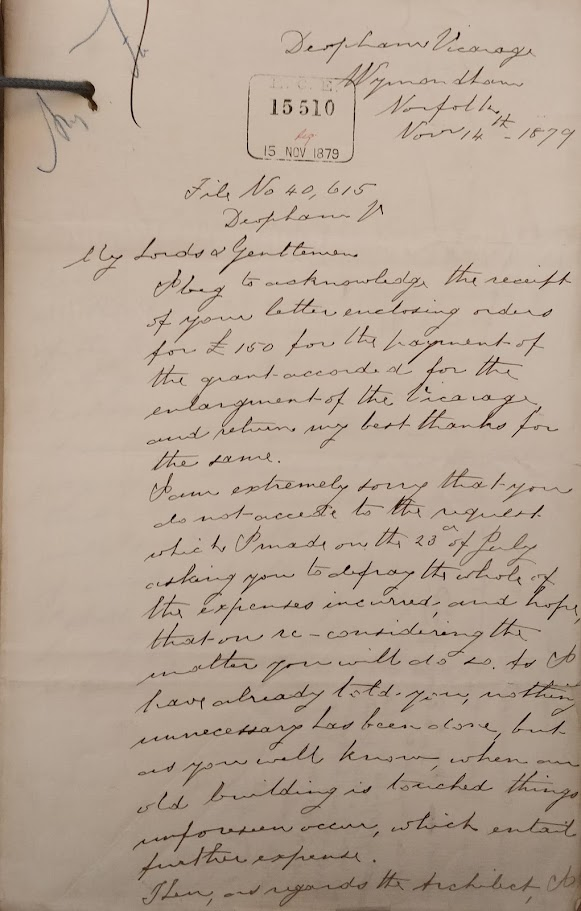 Deopham Vicarage
Wymondham
Norfolk
Novr 14th - 1879
E.C.E.
15510
15 NOV 1879
File No 40,615
Deopham V
My Lords & Gentlemen
I beg to acknowledge the receipt
of your letter enclosing orders
for £150 for the payment of
the grant accorded for the
enlargment of the Vicarage,
and return my best thanks for
the same.
I am extremely sorry that you
do not accede to the request
which I made on the 23d of July
asking you to defray the whole of
the expenses incurred, and hope,
that on re-considering the
matter you will do so. As I
have already told you, nothing
unnecessary has been done, but
as you well know, when an
old building is touched things
unforeseen occur, which entail
further expense.
Then, as regards the Architect, I